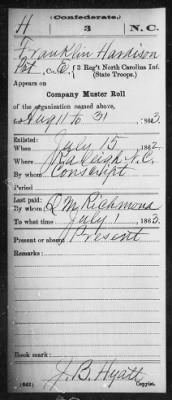 (Confederate.)
H 3 N.C.
Franklin Hardison
Pvt, Co. E, 3 Reg't North Carolina Inf.
(State Troops.)
Appears on
Company Muster Roll
of the organization named above,
for Aug 11 to 31, 1863.
Enlisted:
When July 15, 1862.
Where Raleigh N.C.
By whom Conscript
Period
Last paid:
By whom Q M Richmond
To what time July 1, 1863.
Present or absent Present
Remarks:
Book mark:
J. B. Hyatt
(642) Copyist.